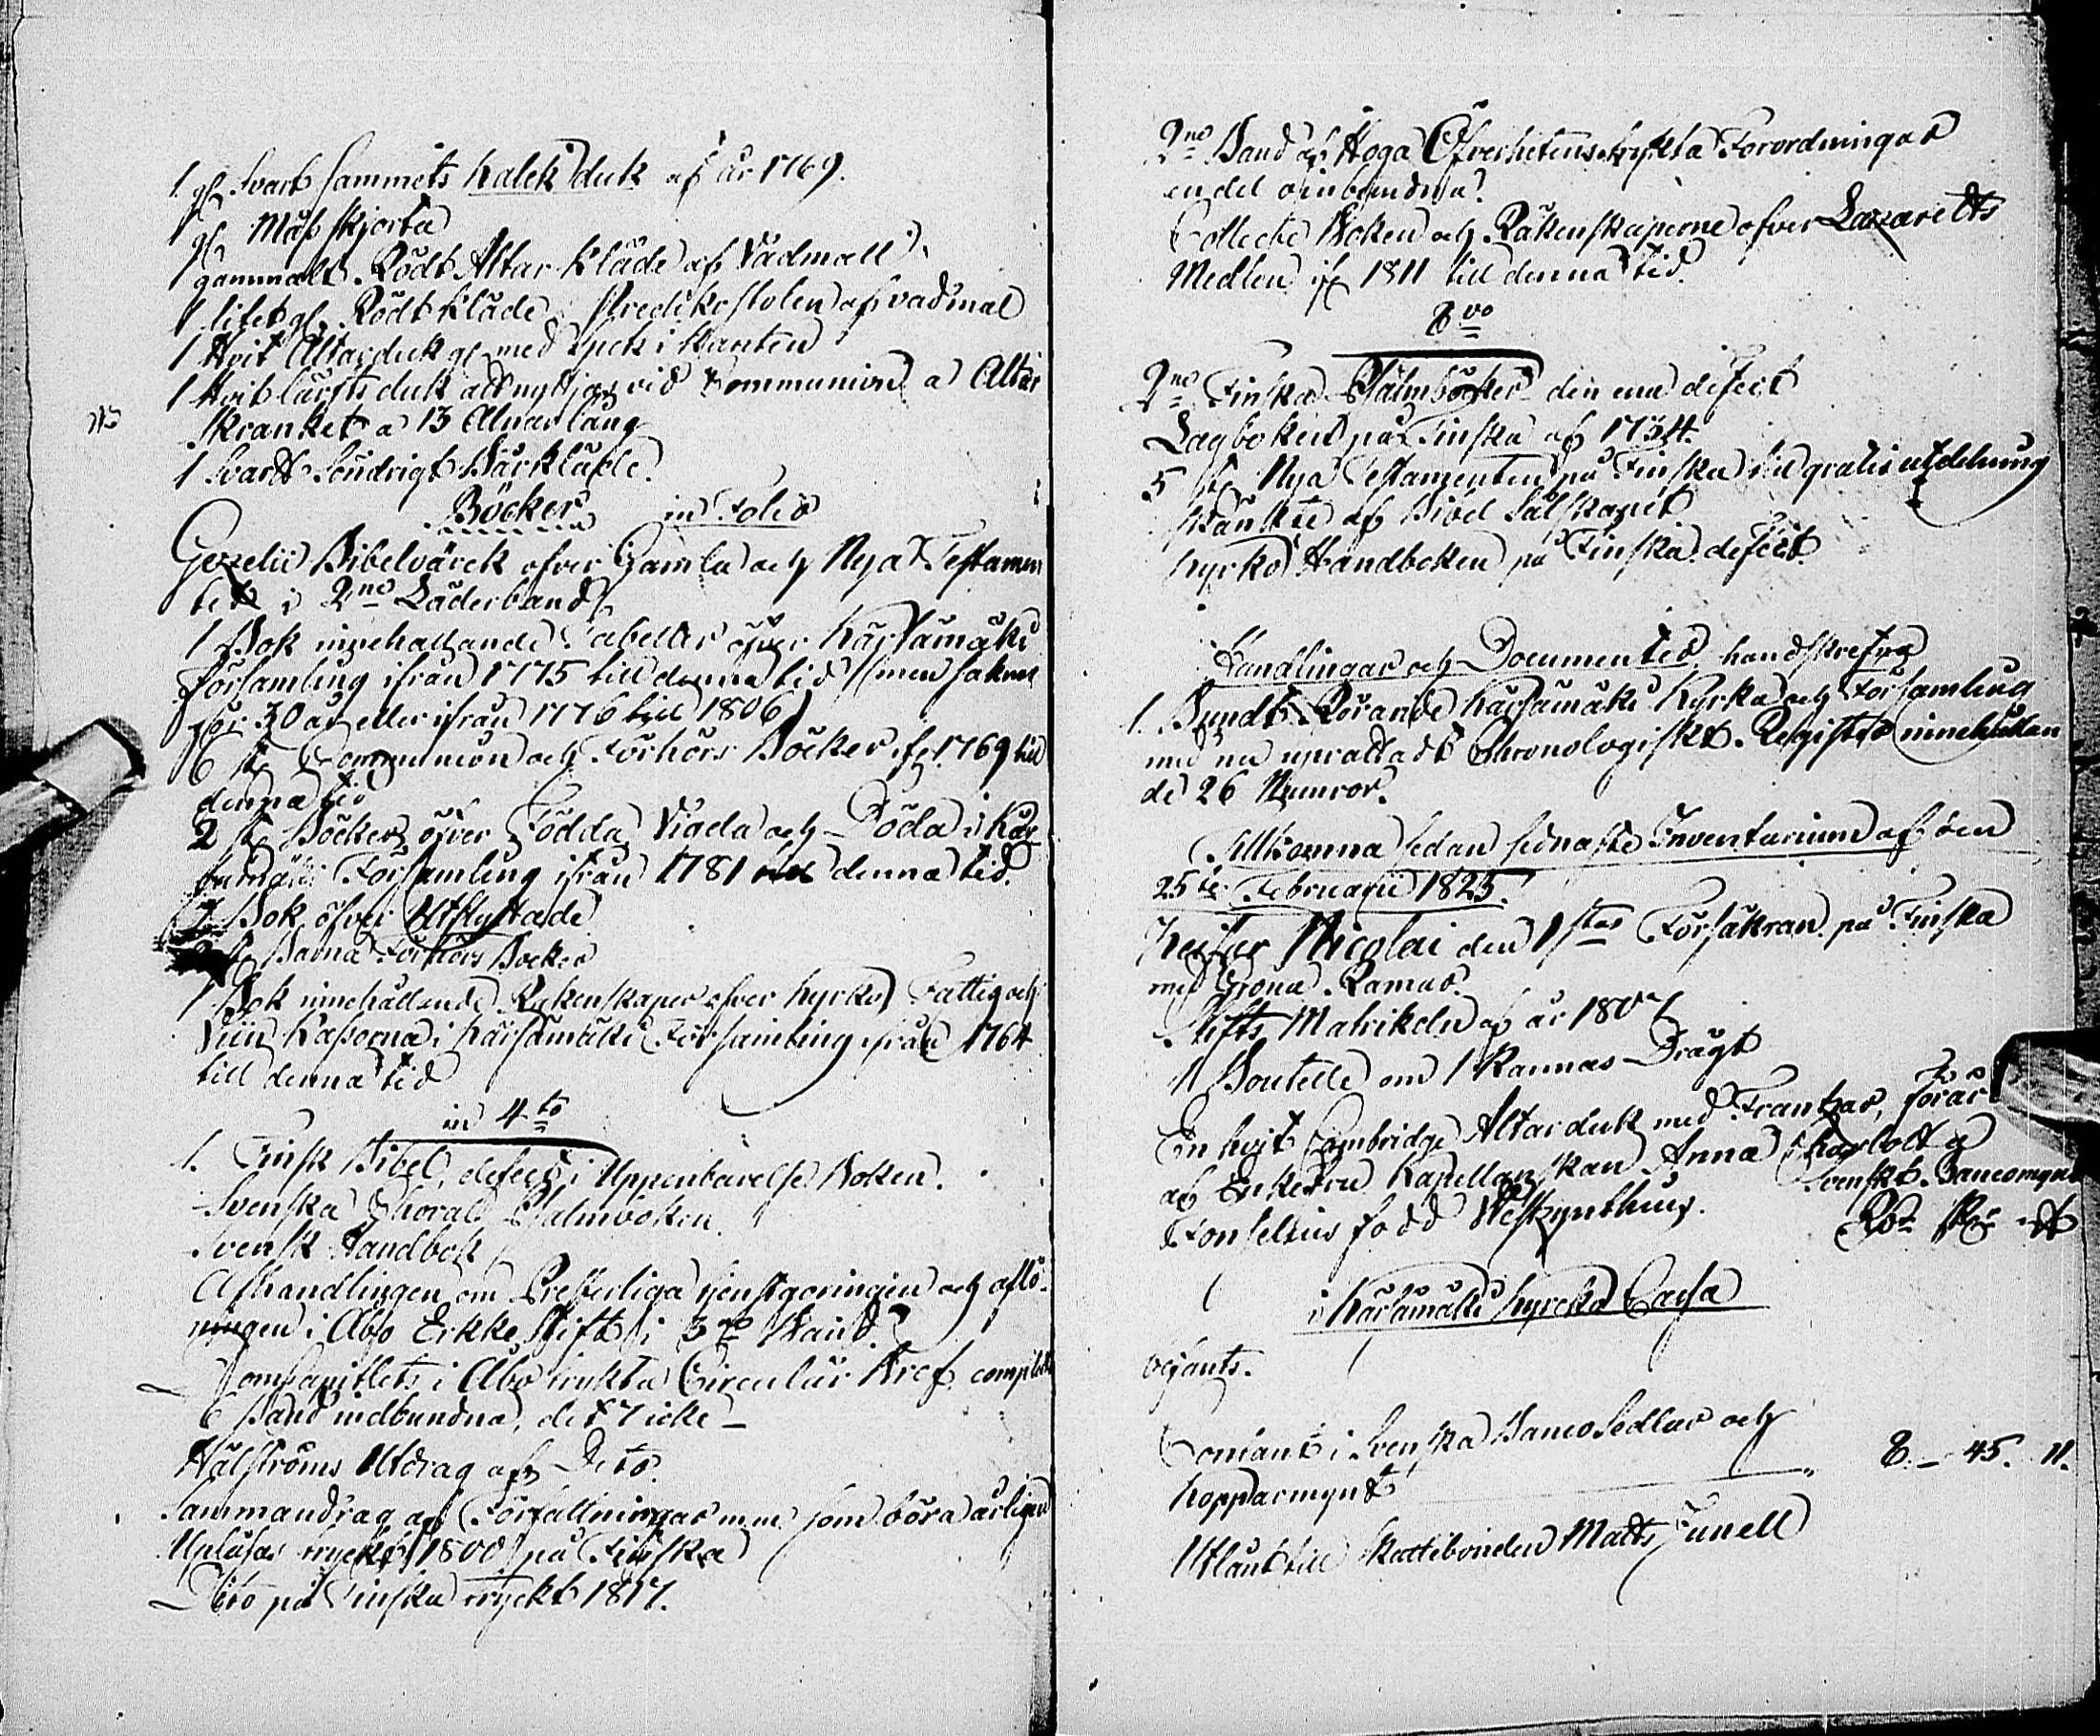 1 gl Svart Sammets Kalck duk af år 1769.
1 gl Mässskjorta
1 gammalt Rödt Altar kläde af Vadmall
1 litet gl. Rödt kläde Predikostolen af vadmal
1 Hvit Altarduk gl med spets i kanten
1 Hvit lärfts duk att nyttjas vid Communion a Altar
skranket a 13 Alnar lång
1 Svart Söndrigt Bårkläde.
Böcker in Folio
Gezelii Bibelvärck öfver Gamla och Nya Testamen
tet i 2ne Läderband
1 Bok innehållande Tabeller öfver Kärsämäki
församling ifrån 1775 till denna tid (men saknas
för 30 år eller ifrån 1776 till 1806)
6 st Communion och Förhörs Böcker ifr. 1769 till
denna tid
2 st Böcker öfver Födda, Viada och Döda i Kär
sämäki Församling ifrån 1781 till denna tid.
1 Bok öfver Utflyttade
st Barna Förhörs Böcker
1 Bok innehållande Räkenskaper öfver Kyrko, Fattig och
Viin Kassorna i Kärsämäki Församling ifrån 1764
till denna tid
in 4to
1. Finsk Bibel, defect i Uppenbarelse Boken.
Svenska Choral Psalmboken.
Svensk Handbok
Afhandlingen om Presterliga tjenstgöringen och aflö-
ningen i Åbo Erkke Stift i 3ne Band.
Domcapitlets i Åbo tryckta Circulär Bref, complett
6 Band inbundna, det 7 icke —
Hälströms Utdrag af Dito.
Sammandrag af Författningar m.m. som böra årligen
Upläsas tryckt 1800 på Finska
Dito på Finska tryckt 1817.
2ne Band af Höga Öfverhetens tryckta Förordningar
en del oinbundna.
Collecte Boken och Räkenskaperne öfver Lazaretts
Medlen ifr 1811 till denna tid.
8vo
2ne Finska Psalmböcker den ena defect
Lagboken på Finska af 1734.
5 st Nya Testamenten på Finska till gratis utdelning
skänkte af Bibel Sälskapet
Kyrko Handboken på Finska defect.
Handlingar och Documenter handskrefna
1. Bundt Rörande Kärsämäki Kyrka och Församling
med nu uprättadt Chronologiskt Register innehållan
de 26 Numror.
Tillkomna sedan sednaste Inventarium af den
25te Februarii 1825.
Keiser Nicolai den 1stas Försäkran på Finska
med Gröna Ramar.
Stifts Matrikeln af år 1807
1 Bouteille om 1 Kannas Drägt
En hvit Cambridge Altarduk med Frantzar, förär
af Enkefru Kapellanskan Anna Charlotta
Fonselius född Westzynthius.
Svenskt Bancomynt
Rdr sk rst
i Kärsämäki Kyrcko Cassa
Contant i Svenska Banco Sedlar och
Kopparmynt 8. — 45. 11.
Utlånt till Skattebonden Matts Junell